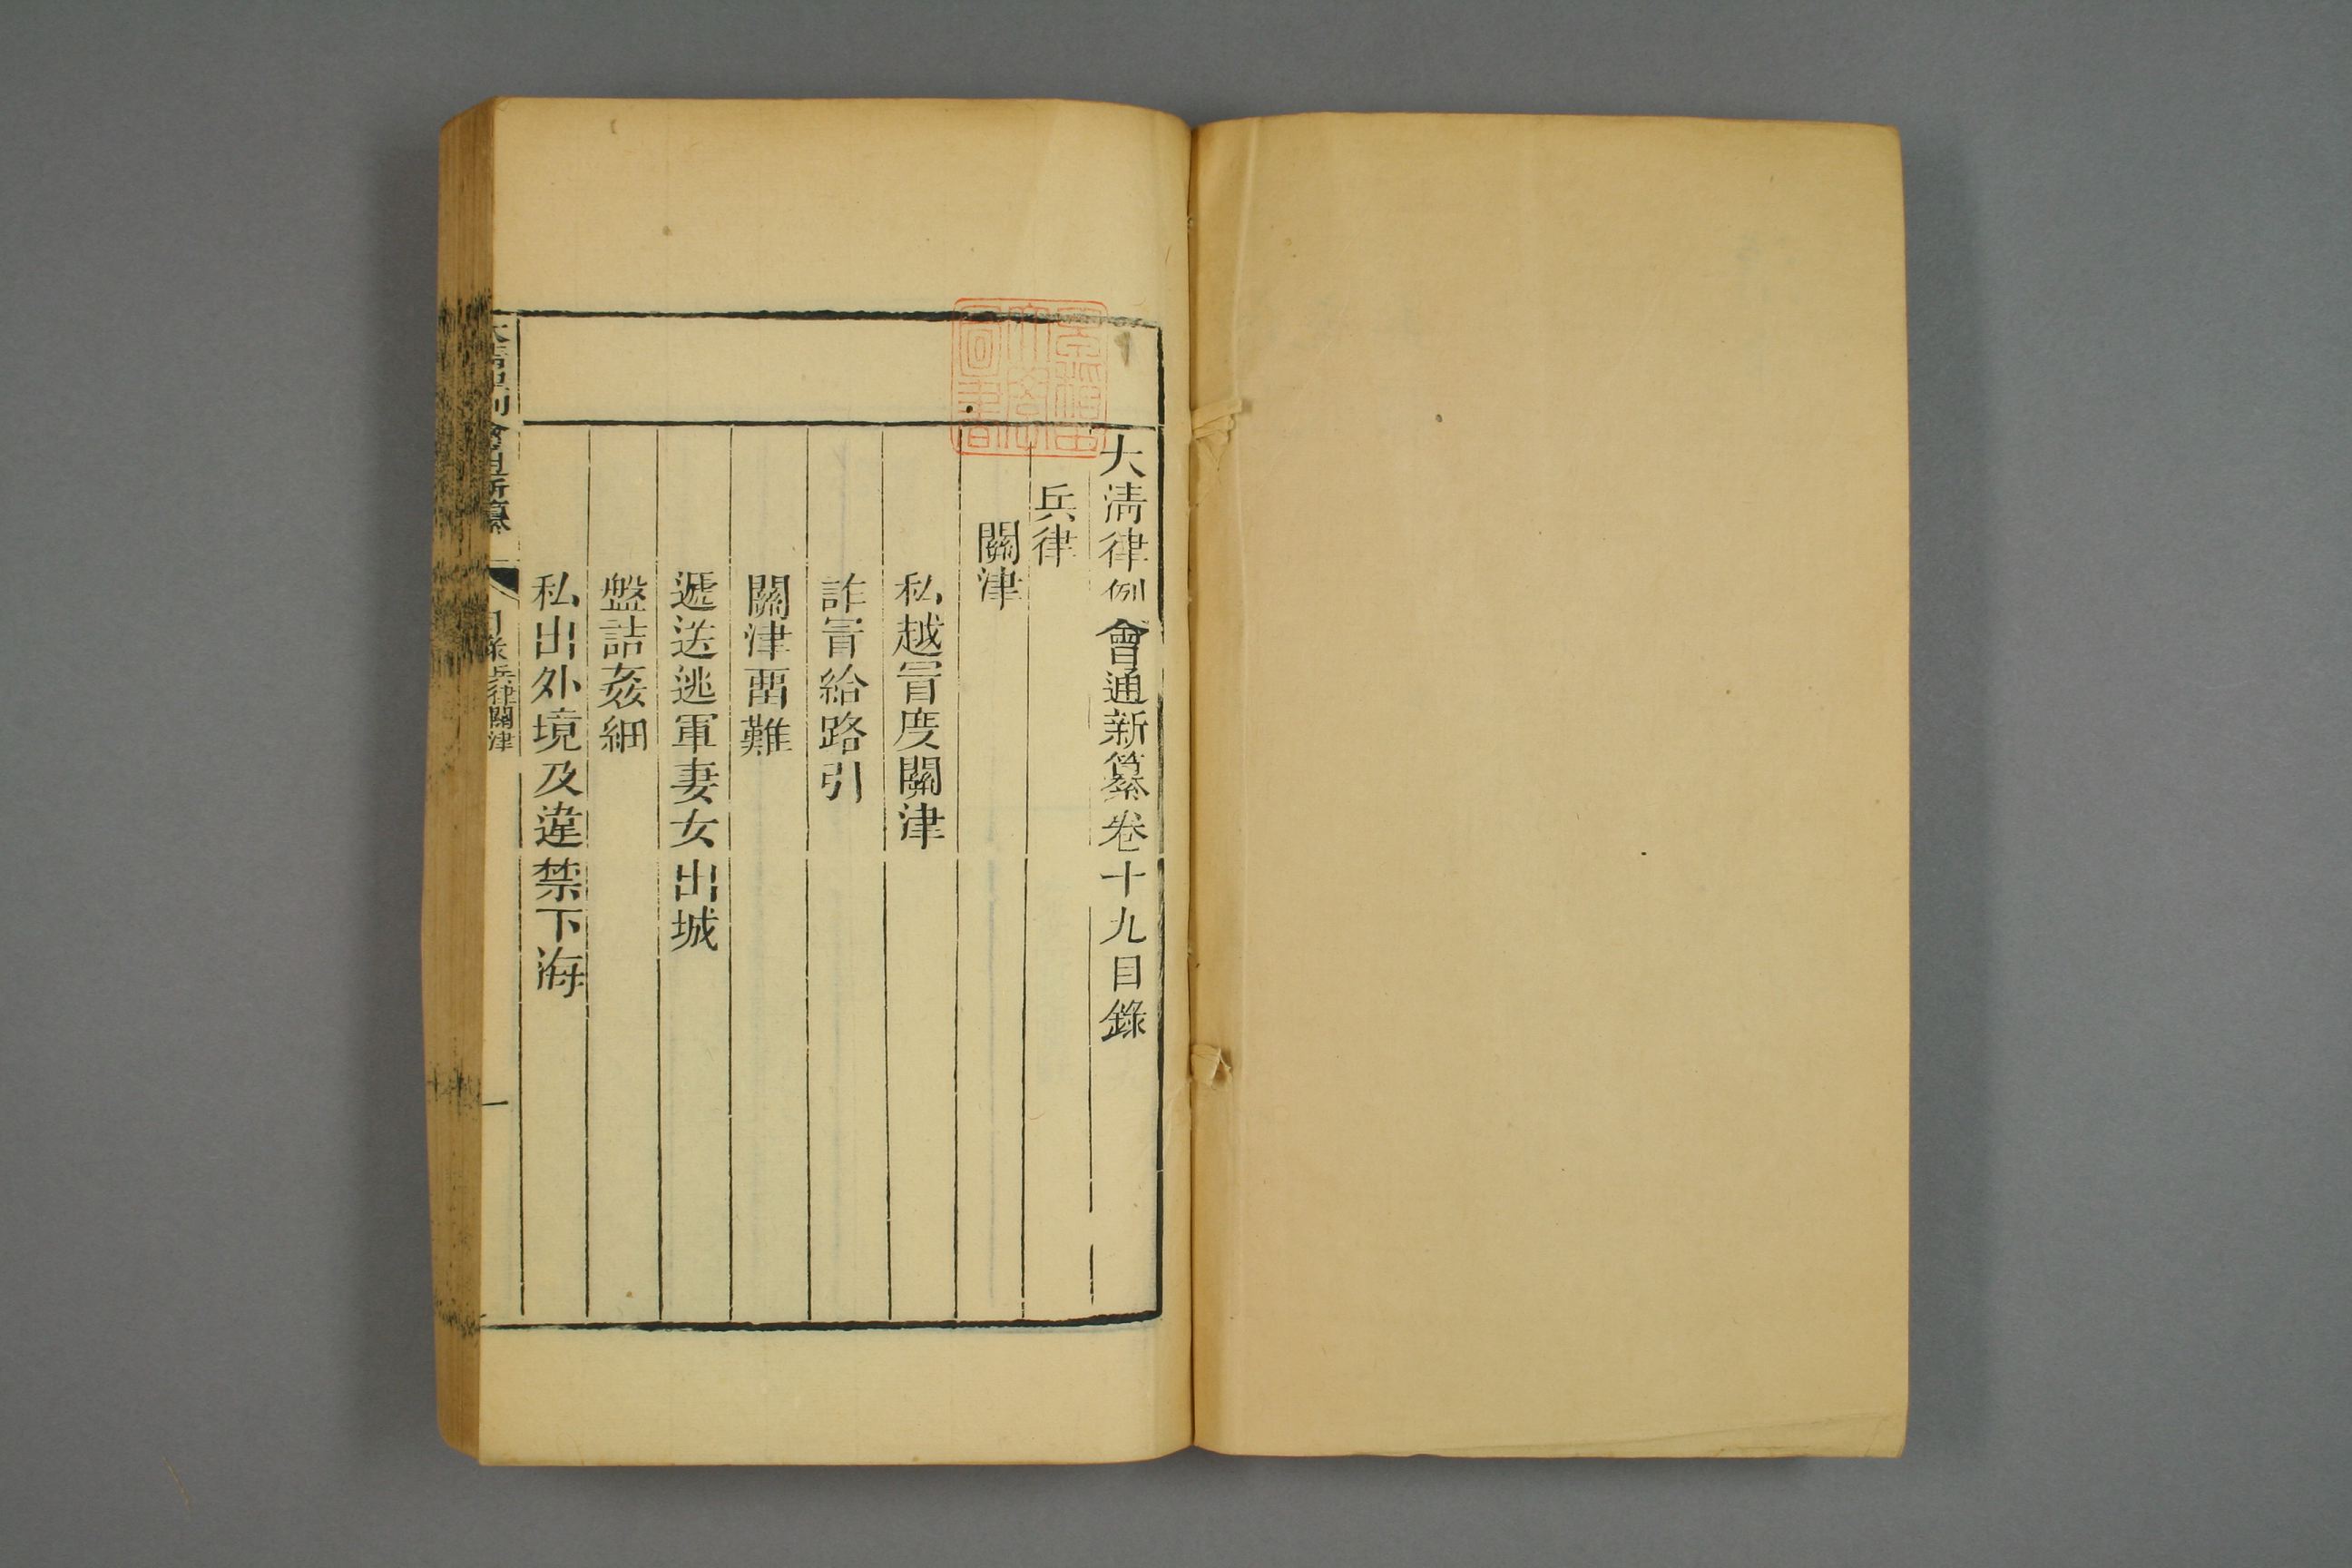 大清律例會通新纂卷十九目錄
兵律
關津
私越冒度關津
詐冒給路引
關津畱難
遞送逃軍妻女出城
盤詰姦細
私出外境及違禁下海
大清律例會通新纂
目錄 兵律關津
一